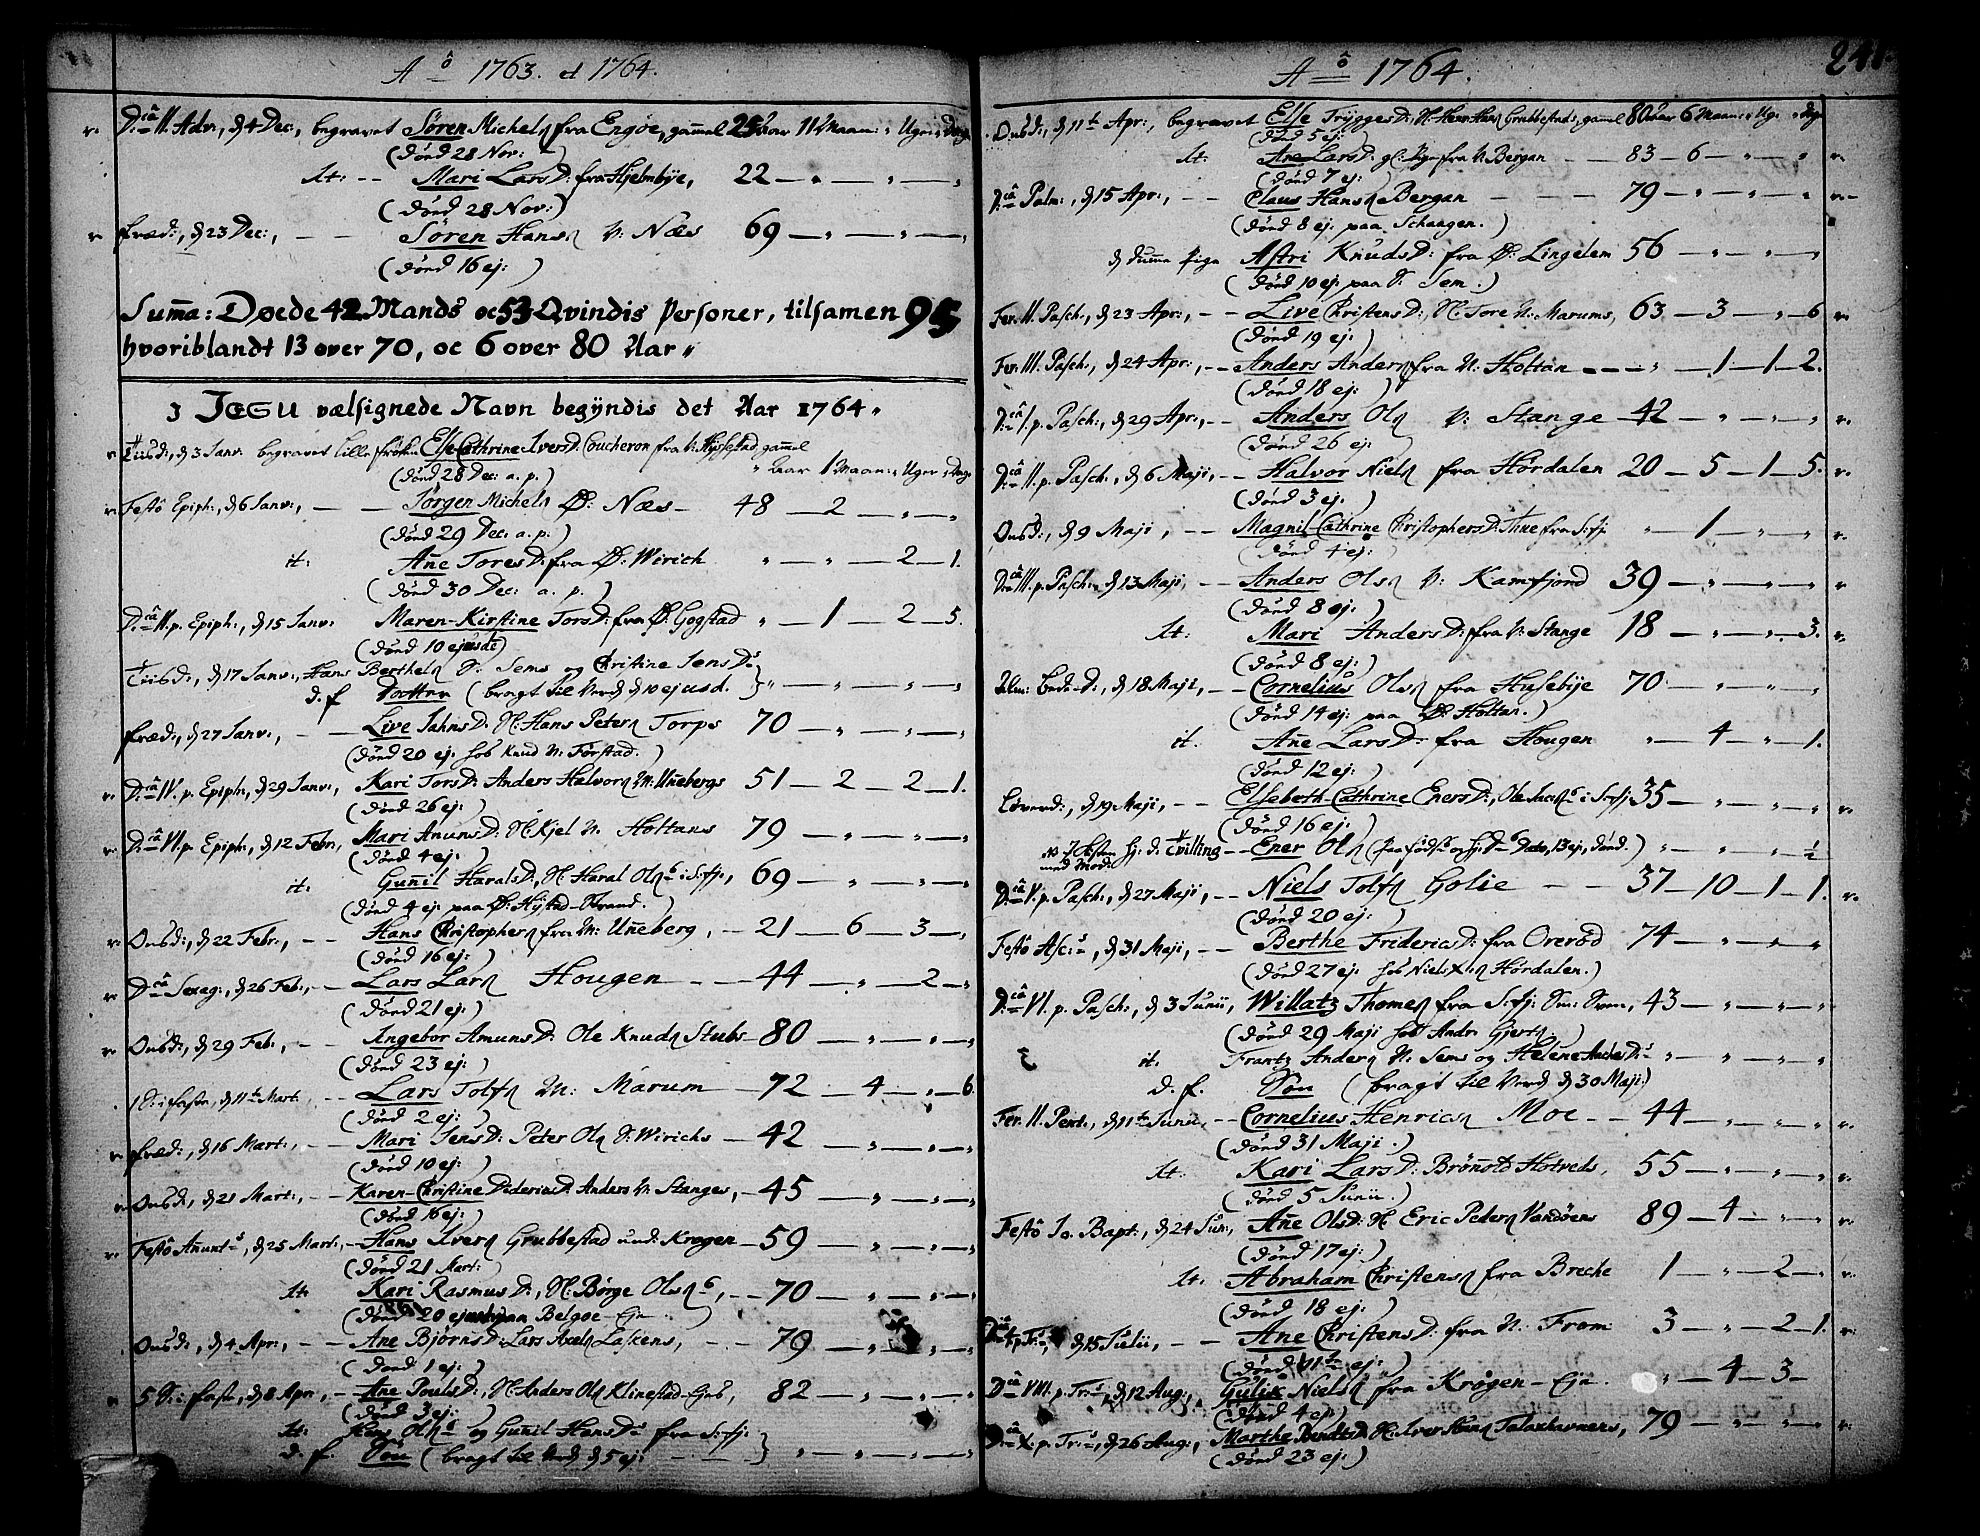 Aô 1763. et 1764.
D:câ II. Adv:, d 4 Dec:, begravet Sören Michels: fra Engöe, gammel 25 Aar 11 Maan: " Uger " Dage
(död 28 Nov:)
It: -- Mari Lars D: fra Hjelmbÿe, 22 — " — " — "
(död 28 Nov:)
Fred:, d 23 Dec:, — Sören Hans: V: Næs 69 — " — " — "
(död 16 ej:)
Suma: Döede 42 Mands oc 53 Qvindis Personer, tilsamen 95
hvoriblandt 13 over 70, oc 6 over 80 Aar "
J JESU vælsignede Navn begÿndis det Aar 1764 "
Tiisd:, d 3 Janv: begravet lille fröken Else Cathrine Ivers D: Coucheron fra V: Hÿssestad gammel
(död 28 Dec: a. p.) " Aar 1 Maan: " Uger " Dage
Festô Epiph:, d 6 Janv:, — Jörgen Michels: Ö: Næs — 48 — 2 — " — "
(död 29 Dec: a. p:)
it: Ane Tores D: fra Ö: Wirich " — " — 2 — 1.
(död 30 Dec: a. p.)
D:câ II. p. Epiph:, d 15 Janv: Maren-Kirstine Tors D: fra Ö: Gogstad " — 1 — 2 — 5.
(död 10 ejusde)
Tiisd:, d 17 Janv:, Hans Berthels: S: Sems og Christine Jens D:
d. f. Dotter (bragt til Verd d 10 ejusd.) " — " — " — "
Fred:, d 27 Janv:, — Live Jahns D: H: Hans Peters: Torps 70 — " — " — "
(död 20 ej hos Knud N: Forstad.)
D:câ IV. p. Epiph:, d 29 Janv:, Kari Tors D: Anders Halvors: N: Unebergs 51 — 2 — 2 — 1.
(död 26 ej:)
D:câ VI. p. Epiph:, d 12 Febr:, Mari Amuns D: H: Kjel N: Holtans 79 — " — " — "
(död 4 ej:)
it: Gunil Harals D:, H: Haral Ols: i S:fj:, 69 — " — " — "
(död 4 ej: paa Ö: Hÿstad-Strand.)
Onsd:, d 22 Febr:, -- Hans Christophers: fra N: Uneberg, — 21 — 6 — 3 — "
(död 16 ej:)
D:câ Sexag:, d 26 Feb:, — Lars Lars: Hougen — 44 — " — 2 — "
(död 21 ej:)
Onsd:, d 29 Feb:, — Ingebor Amuns D: Ole Knuds: Stubs — 80 — " — " — "
(död 23 ej:)
1 S: i faste, d 11te Mart:, — Lars Tolfs: N: Marum — 72 — 4 — " — 6
(död 2 ej:)
Fred:, d 16 Mart:, — Mari Jens D: Peter Ols: S: Wirichs — 42 — " — " — "
(död 10 ej:)
Onsd:, d 21 Mart:, -- Karen-Christine Dideriks D: Anders V: Stanges, — 45 — " — " — "
(död 16 ej:)
Festô Anunt:, d 25 Mart:, — Hans Ivers: Grubbestad und: Krogen — 59 — " — " — "
(död 21 Mart:)
It: Kari Rasmus D:, H: Börge Ols:, -- 70 — " — " — "
(död 20 paa Belgoe-Eje.)
Onsd:, d 4 Apr:, — Ane Björns D: Lars Axels: Laskens, — 79 — " — " — "
(död 1 ej:)
5 S: i faste, d 8 Apr:, — Ane Pouls D:, H: Anders Ols: Klinestad-, 82 — " — " — "
(död 3 ej:)
It: Hans Ols: og Gunil Hans D: fra S:fj:
d. f. Sön (bragt til Verd d 5 ej: " — " — " — "
Aô 1764.
241.
Onsd:, d 11te Apr:, begravet Else Trÿgges D:, H: Hans Grubbestads, gamel 80 Aar 6 Maan: " Ug: " Dage
(död 5 ej:)
It: Ane Lars D: gl: Pige fra V: Bergan — 83 — 6 — " — "
(död 7 ej:)
D:câ Palm:, d 15 Apr:, -- Claus Hans: Bergan — 79 — " — " — "
(död 8 ej: paa Schangen.)
d dumme Pige Astri Knuds D: fra Ö: Lingelem 56 — " — " — "
(död 10 ej: paa S: Sem.)
Fer: II. Pasch:, d 23 Apr:, -- Live Christens D:, H: Tore N: Marums, 63 — 3 — " — 6
(död 19 ej:)
Fer: III. Pasch:, d 24 Apr:, -- Anders Anders: fra N: Holtan — " — 1 — 1 — 2.
(död 18 ej:)
D:câ I. p. Pasch:, d 29 Apr:, -- Anders Ols: V: Stange — 42 — " — " — "
(död 26 ej:)
D:câ II. p. Pasch:, d 6 Maji, -- Halvor Niels: fra Hördalen 20 — 5 — 1 — 5.
(död 3 ej:)
Onsd:, d 9 Maji, -- Magnil Cathrine Christophers D: Thue fra S:fj: " — 1 — " — "
(död 4 ej:)
D:câ III. p. Pasch:, d 13 Maji, -- Anders Ols: V: Kamfjord 39 — " — " — "
(död 8 ej:)
It: Mari Anders D: fra V: Stange 18 — " — " — 3.
(död 8 ej:)
Alm: Bede-D:, d 18 Maji, -- Cornelius Ols: fra Husebÿe 70 — " — " — "
(död 14 ej: paa Ö: Holtan.)
it. Ane Lars D: fra Hougen " — 4 — " — 1.
(död 12 ej:)
Löverd:, d 19 Maji, -- Elsebeth-Cathrine Eners D:, Ole i S:fj: 35 — " — " — "
(död 16 ej:)
med Mod: hj: d: Tvilling -- Ener Ols: (, 13 ej:, död.) " — " — " — ½
D:câ V. p. Pasch:, d 27 Maji, -- Niels Tolfs: Golie — 37 — 10 — 1 — 1.
(död 20 ej:)
Festô Asc:, d 31 Maji, -- Berthe Friderics D: fra Oreröd 74 — " — " — "
(död 27 ej: hos Niels Hördalen.)
D:câ VI. p. Pasch:, d 3 Junii, Willatz Thomes: fra S:fj:, 43 — " — " — "
(död 29 Maji hos Andr: Gjerts:)
it. Frantz Anders: N: Sems og Helene Anders D: " — " — " — "
d. f. Sön (bragt til Verd d 30 Maji)
Fer: II. Pent:, d 11te Junii, -- Cornelius Henrics: Moe -- 44 — " — " — "
(död 31 Maji.)
It: Kari Lars D: Hotveds, 55 — " — " — "
(död 5 Junii.)
Festô Jo. Bapt:, d 24 Jun:, Ane Ols D: H: Eric Peders: Vandöens 89 — 4 — " — "
(död 17 ej:)
It: Abraham Christens: fra Breche 1 — " — 2 — "
(död 18 ej:)
D:câ 4 p. Tr:, d 15 Julii, — Ane Christens D: fra N: From 3 — " — 2 — 1.
(död 11te ej:)
D:câ VIII. p. Tr:, d 12 Aug:, Gulik Niels: fra Krogen-Eje. " — 4 — 3 —
(död 4 ej:)
D:câ X. p. Tr:, d 26 Aug:, Marthe D: H: Iver Talachavners, 79 — " — " — "
(död 23 ej:)